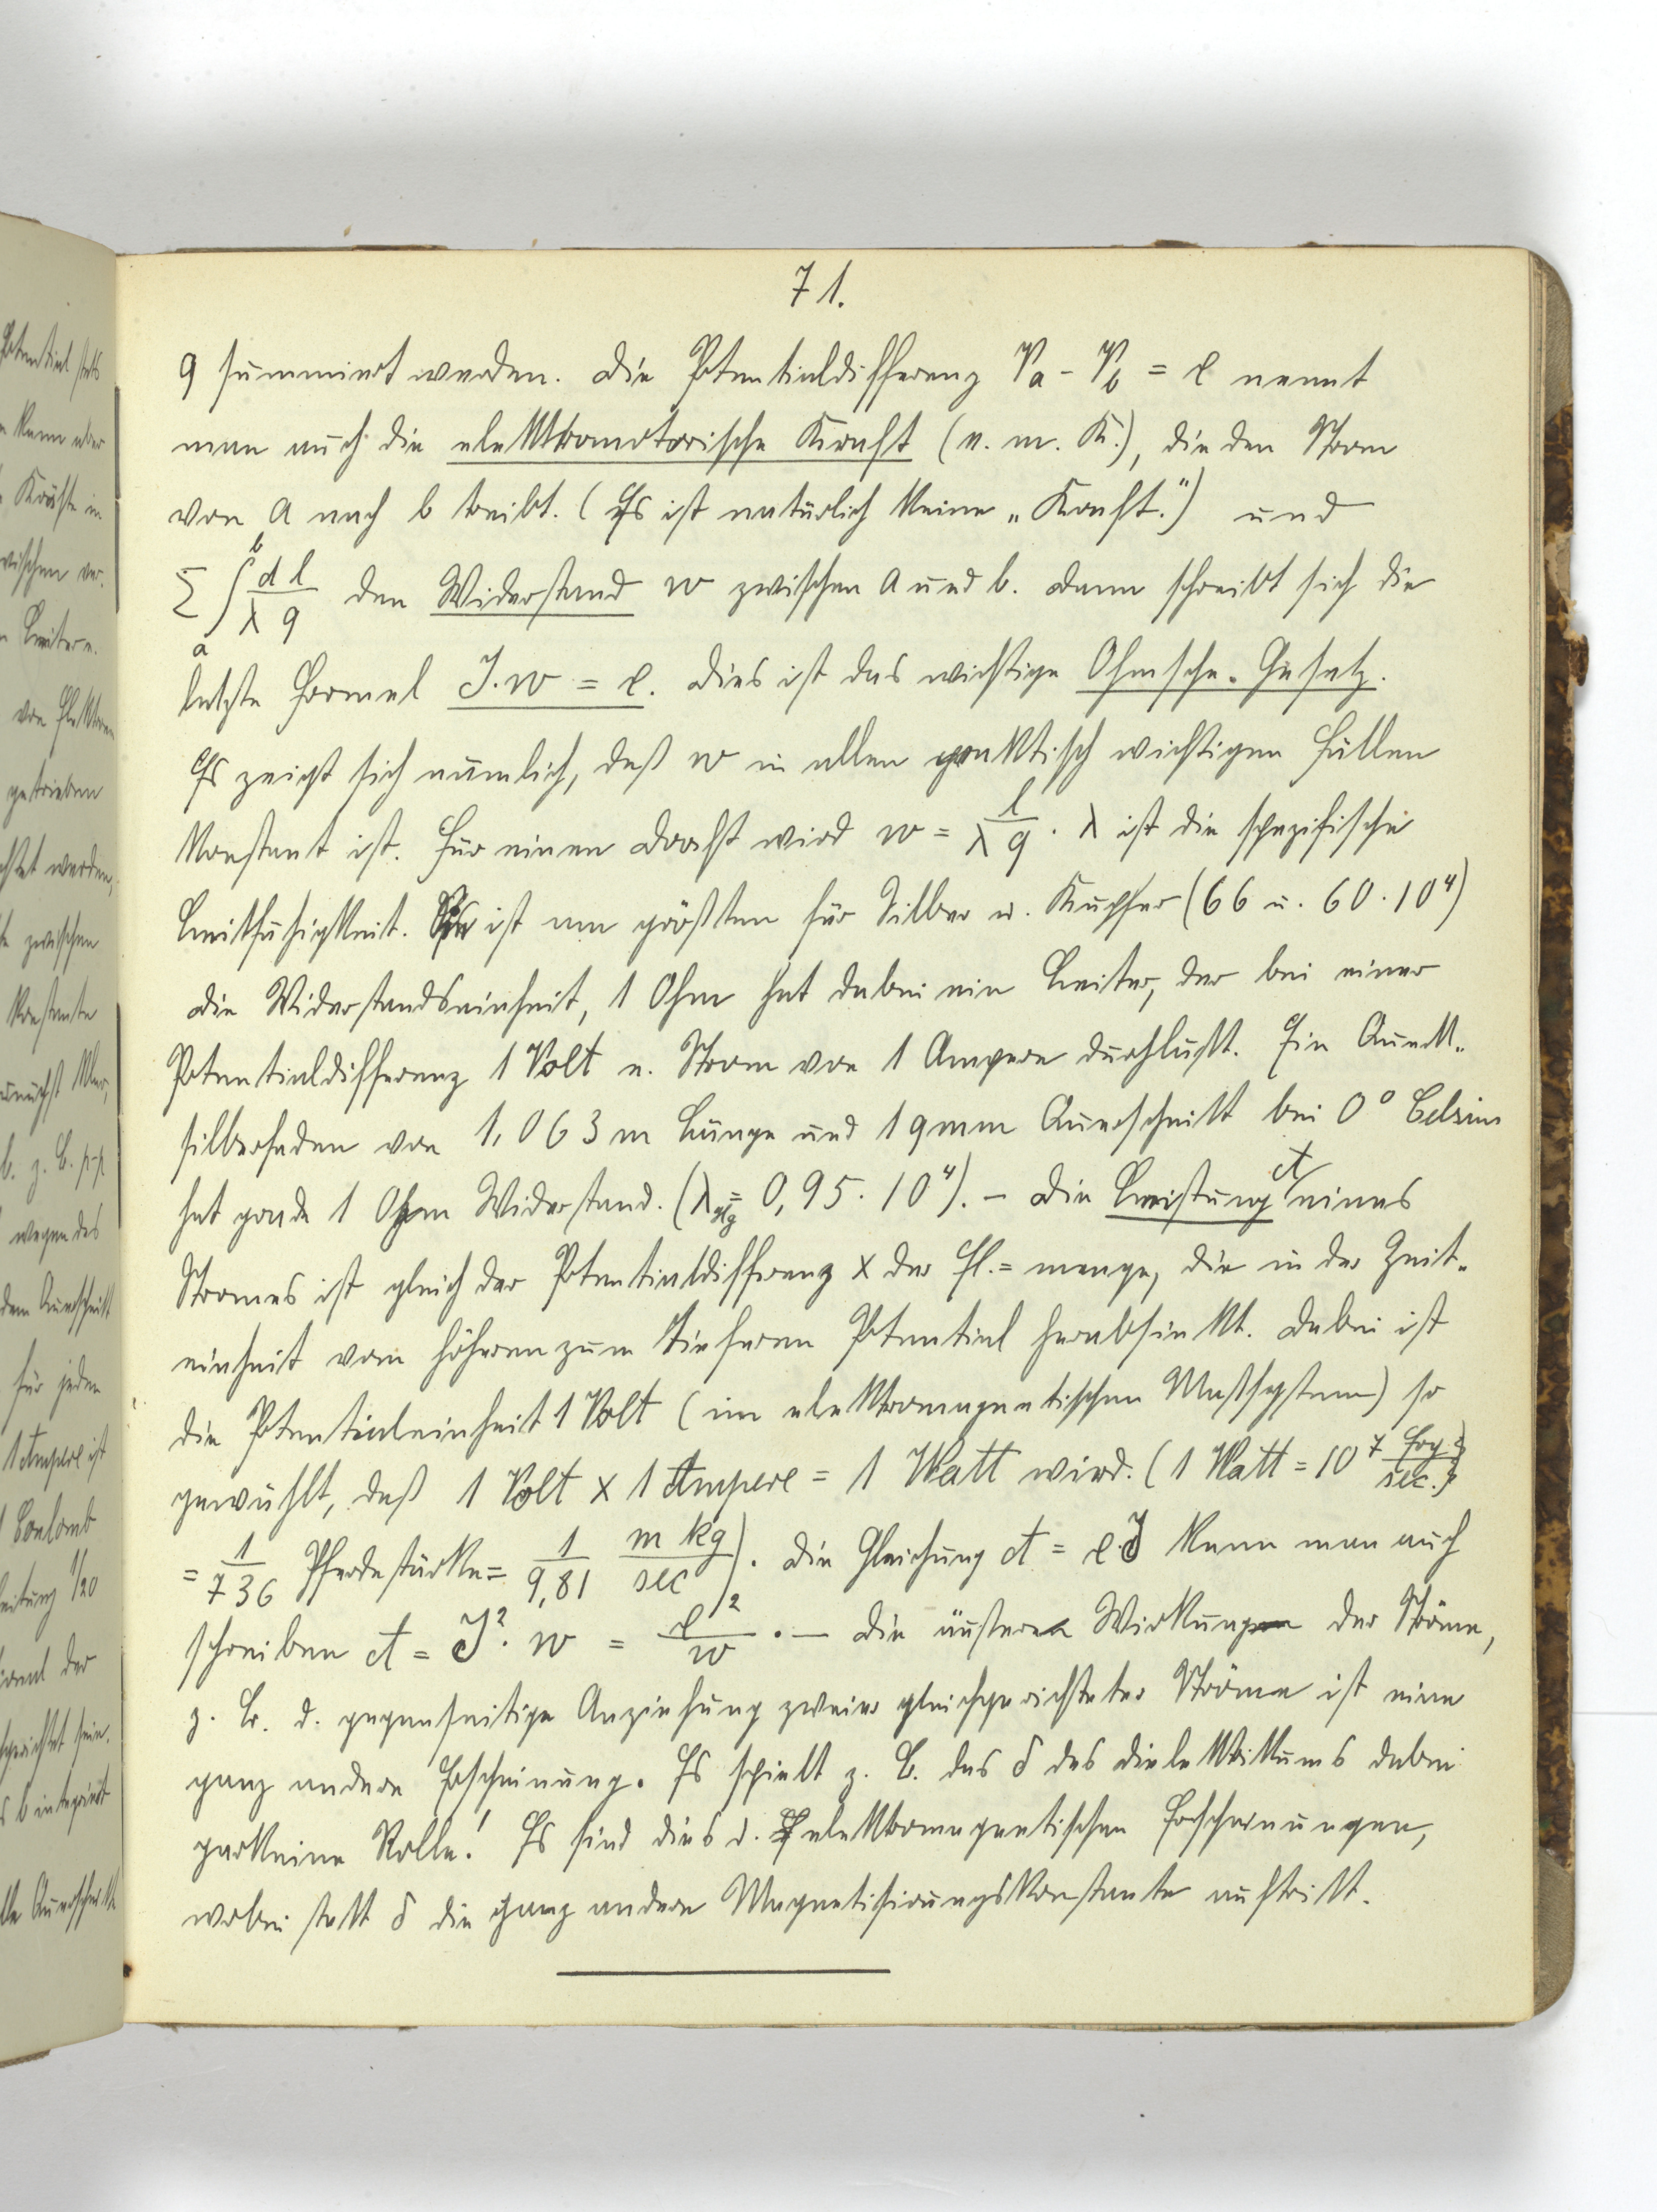 71.
q summiert werden. Die Potentialdifferenz Va - Vb = e nennt
man auch die elektromotorische Kraft (e. m. K.), die den Strom
von a nach b treibt. (Es ist natürlich keine „Kraft.") und
Σ ∫ₐᵇ dl/λq den Widerstand w zwischen a und b. Dann schreibt sich die
letzte Formel J.w = e. Dies ist das wichtige Ohmsche-Gesetz.
Es zeigt sich nämlich, daß w in allen praktisch wichtigen Fällen
konstant ist. Für einen Draht wird w = l/λq. λ ist die spezifische
Leitfähigkeit. Sie ist am größten für Silber u. Kupfer (66 u. 60 . 10⁴)
Die Widerstandseinheit, 1 Ohm hat dabei ein Leiter, der bei einer
Potentialdifferenz 1 Volt e. Strom von 1 Ampere durchläßt. Ein Queck-
silberfaden von 1,063 m Länge und 1 qmm Querschnitt bei 0° Celsius
hat grade 1 Ohm Widerstand. (λHg = 0,95 . 10⁴). – Die Leistung A eines
Stromes ist gleich der Potentialdifferenz x der El.=menge, die in der Zeit-
einheit vom höheren zum tieferen Potential herabsinkt. Dabei ist
die Potentialeinheit 1 Volt (im elektromagnetischen Maßsystem) so
gewählt, daß 1 Volt x 1 Ampere = 1 Watt wird. (1 Watt = 10⁷ Erg/sec.
= 1/736 Pferdestärke = 1/9,81 m kg/sec). Die Gleichung A = e.J kann man auch
schreiben A = J². w = e²/w. – Die äußeren Wirkungen der Ströme,
z. B. d. gegenseitige Anziehung zweier gleichgerichteter Ströme ist eine
ganz andere Erscheinung. Es spielt z. B. das δ des Dielektrikums dabei
garkeine Rolle! Es sind dies d. elektromagnetischen Erscheinungen,
wobei statt δ die ganz andere Magnetisierungskonstante auftritt.